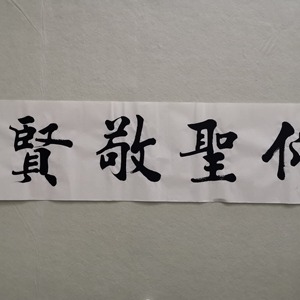 賢敬聖